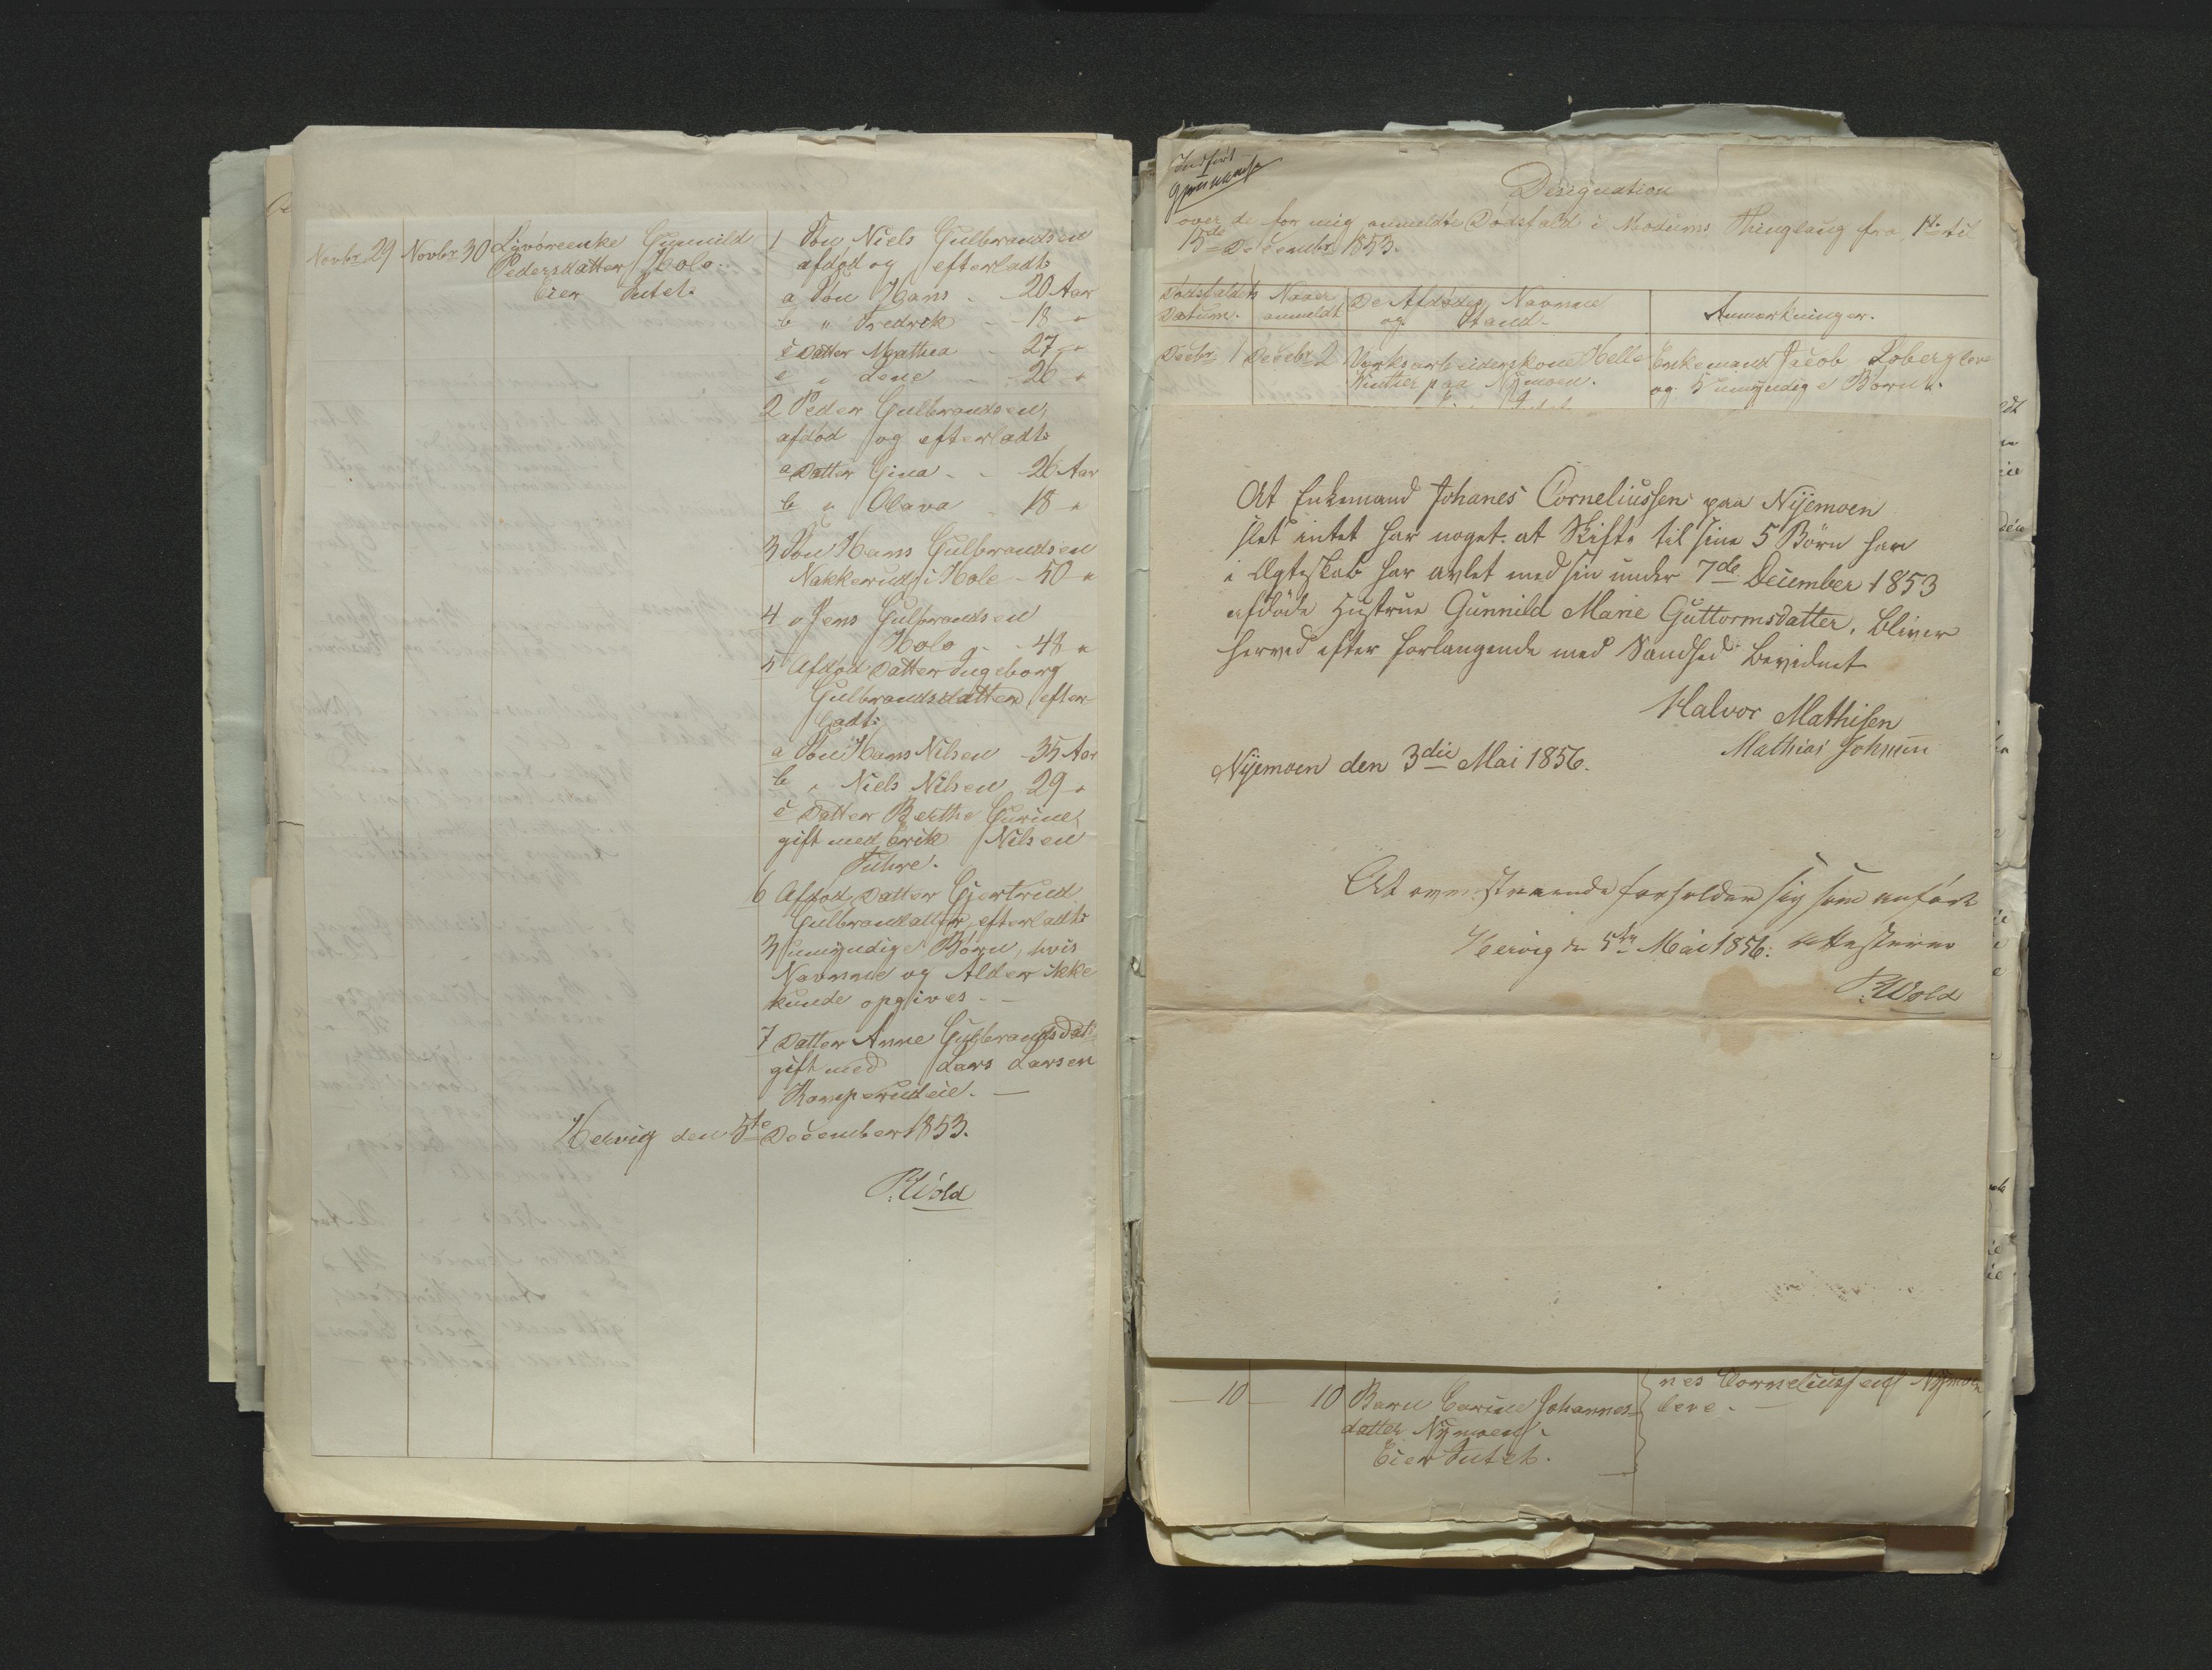 Novbr 29 Novbr 30 Livöreenke Gunnild
Pedersdatter Holo.
Eier Intet.
1 Søn Niels Gulbrandsen
afdød og efterladt:
a Søn Hans - 20 Aar
b " Fredrik - 18 "
c Datter Marthea - 27 "
e " Lene - 26 "
2 Peder Gulbrandsen,
afdød og efterladt:
a Datter Gina - - 26 Aar
b " Olava - 18 "
3 Søn Hans Gulbrandsen
Nakkerud i Hole - 50 "
4 " Jens Gulbrandsen
Holo - - 48 "
5 Afdød Datter Ingeborg
Gulbrandsdatter efter-
ladt:
a Søn Hans Nilsen - 35 Aar
b " Niels Nilsen 29 "
c Datter Berthe Gurine,
gift med Erik Nilsen
6 Afdød Datter Gjertrud
Gulbrandsdatter, efterladt:
3 umyndige Børn, hvis
Navnne og Alder ikke
kunde opgives. -
7 Datter Anne Gulbrandsdat:
gift med Lars Larsen
Komperudeie. -
Hervig den 5te December 1853.
P. Wold
Indført
Designation
over de for mig anmeldte Dødsfald i Modums Thinglaug fra 1ste til
15de Decembr 1853.
Dødsfaldets Datum.
Naar anmeldt
De Afdødes Navnne og Stand.
Anmærkninger.
Decbr 1 Decebr 2 Værksarbeiderskone Helle
paa Nymoen.
Enkemand Jacob Loberg leve
og 5 umyndige Børn.
At Enkemand Johanes Corneliussen paa Nÿemoen
slet intet har noget at Skifte til sine 5 Börn han
i Ægteskab har avlet med sin under 7de December 1853
afdöde Hustrue Gunnild Marie Guttormsdatter, bliver
herved efter Forlangende med Sandhed bevidnet
Halvor Mathisen
Mathias Johnsen
Nÿemoen den 3die Mai 1856.
At ovenstaaende forholder sig som anfört
Hervig den 5te Mai 1856. attesteres
P. Wold
nes Corneliussen Nÿmoen
leve. -
- 10 - 10 Barn Carine Johannes-
datter Nÿmoen.
Eier Intet.